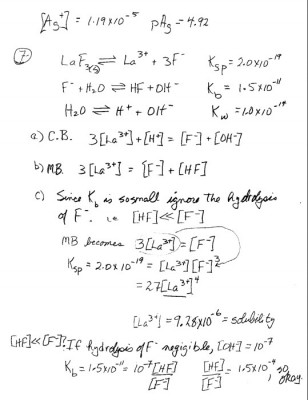 [Ag⁺] = 1.19×10⁻⁵ pAg = 4.92
⑦ LaF₃₍ₛ₎ ⇌ La³⁺ + 3F⁻ Ksp = 2.0×10⁻¹⁹
F⁻ + H₂O ⇌ HF + OH⁻ Kb = 1.5×10⁻¹¹
H₂O ⇌ H⁺ + OH⁻ Kw = 1.0×10⁻¹⁴
a) C.B. 3[La³⁺] + [H⁺] = [F⁻] + [OH⁻]
b) MB. 3[La³⁺] = [F⁻] + [HF]
c) Since Kb is so small ignore the hydrolysis
of F⁻. i.e. [HF] << [F⁻]
MB becomes 3[La³⁺] = [F⁻]
Ksp = 2.0×10⁻¹⁹ = [La³⁺][F⁻]³
= 27[La³⁺]⁴
[La³⁺] = 9.28×10⁻⁶ = solubility
[HF] << [F⁻]? If hydrolysis of F⁻ negigible, [OH] = 10⁻⁷
Kb = 1.5×10⁻¹¹ = 10⁻⁷ [HF]/[F⁻] [HF]/[F⁻] = 1.5×10⁻⁴, so okay.